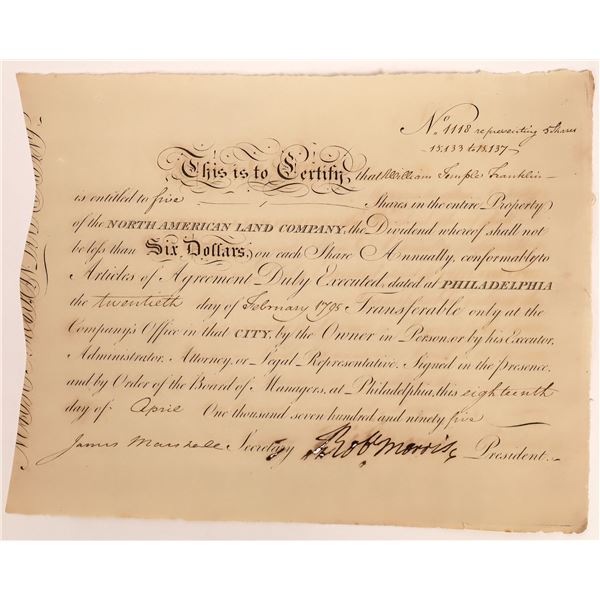 No. 1118 representing 5 Shares
15,133 to 15,137
This is to Certify, that William Temple Franklin
is entitled to five Shares in the entire Property
of the NORTH AMERICAN LAND COMPANY, the Dividend whereof shall not
be less than Six Dollars, on each Share Annually, conformably to
Articles of Agreement Duly Executed, dated at PHILADELPHIA
the twentieth day of February 1795 Transferable only at the
Company's Office in that CITY, by the Owner in Person, or by his Executor,
Administrator, Attorney, or Legal Representative. Signed in the presence,
and by Order of the Board of Managers, at Philadelphia, this eighteenth
day of April One thousand seven hundred and ninety five
James Marshall Secretary Robt Morris President.